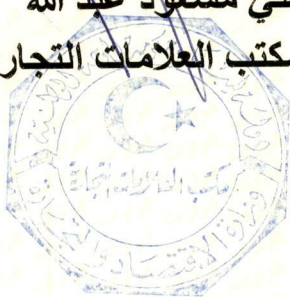 علي مسعود عبد الله
مكتب العلامات التجار
مكتب العلامات التجارية
وزارة الاقتصاد والتجارة